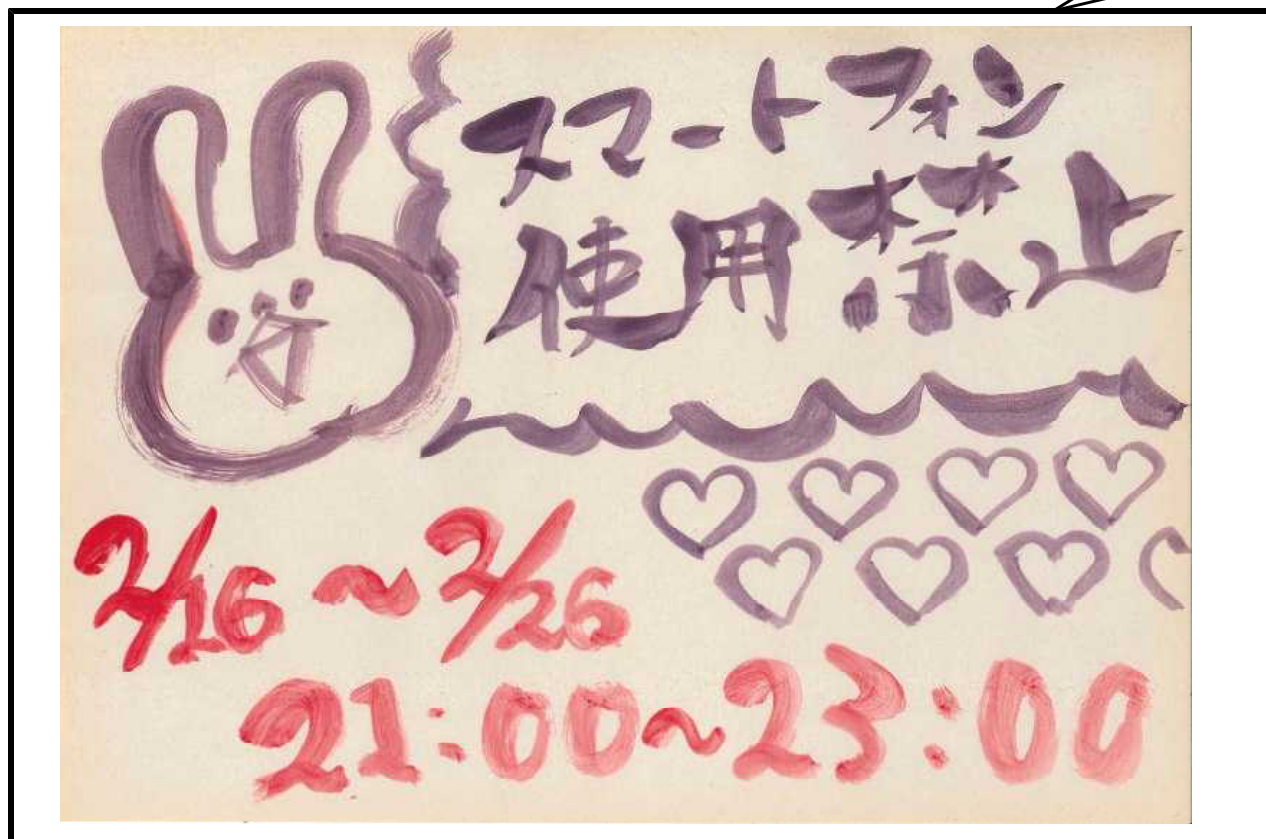 スマートフォン
使用禁止
2/16～2/26
21:00～23:00